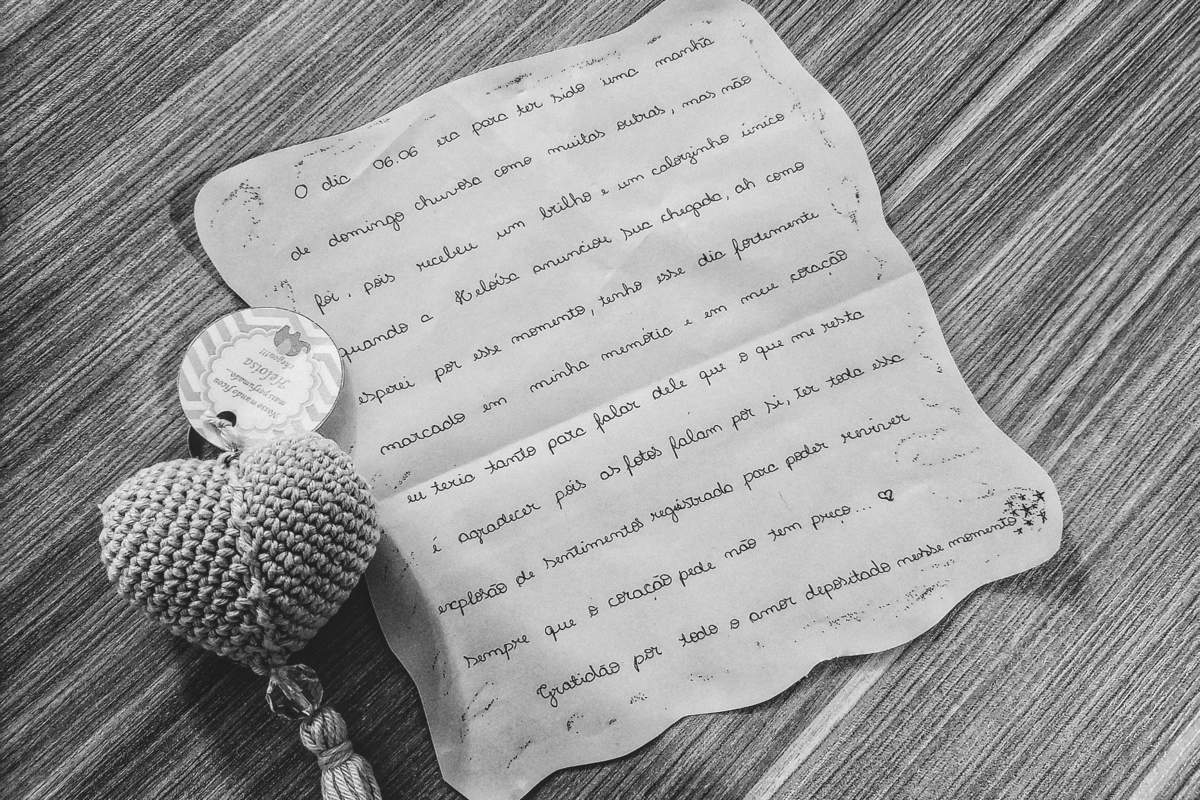 O dia 06.06 era para ter sido uma manhã
de domingo chuvosa como muitas outras, mas não
foi, pois recebeu um brilho e um calorzinho único
quando a Heloísa anunciou sua chegada, ah como
esperei por esse momento, tenho esse dia fortemente
marcado em minha memória e em meu coração
eu teria tanto para falar dele que o que me resta
é agradecer pois as fotos falam por si, ter toda essa
explosão de sentimentos registrado para poder reviver
sempre que o coração pede não tem preço...
Gratidão por todo o amor depositado nesse momento
Nosso mundo ficou
mais perfumado...
Heloísa
chegou!!!